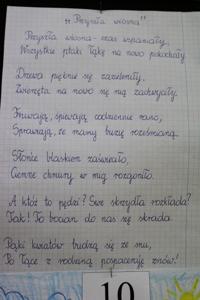 „Przyszła wiosna"
Przyszła wiosna - czas wspaniały,
Wszystkie ptaki łąkę na nowo pokochały
Drzewa pięknie się zazieleniły,
Zwierzęta na nowo się nią zachwyciły.
Fruwają, śpiewają codziennie rano,
Sprawiają, że mamy buzię roześmianą.
Słońce blaskiem zaświeciło,
Ciemne chmury w mig rozgoniło.
A któż to pędzi? Swe skrzydła rozkłada?
Tak! To bocian do nas się skrada.
Pąki kwiatów budzą się ze snu,
Po łące z rodziną pospaceruję znów!
10